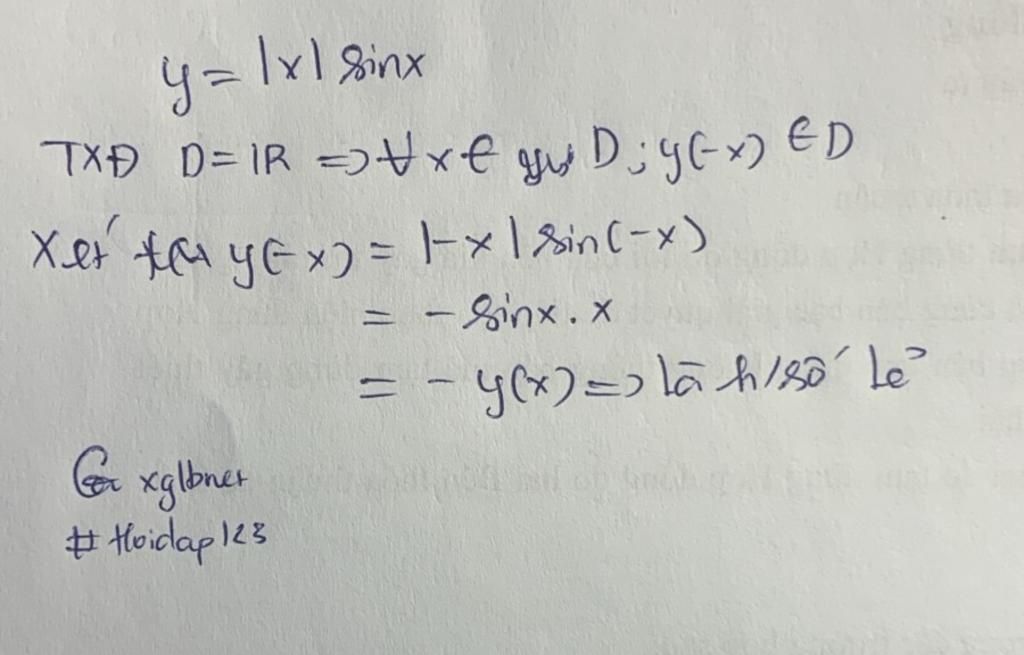 y = |x| sinx
TXĐ D = IR => ∀ x ∈ D ; y(-x) ∈ D
Xét y(-x) = |-x| sin(-x)
= - sinx . x
= - y(x) => là h/số lẻ
xglbner
# Hoidap123